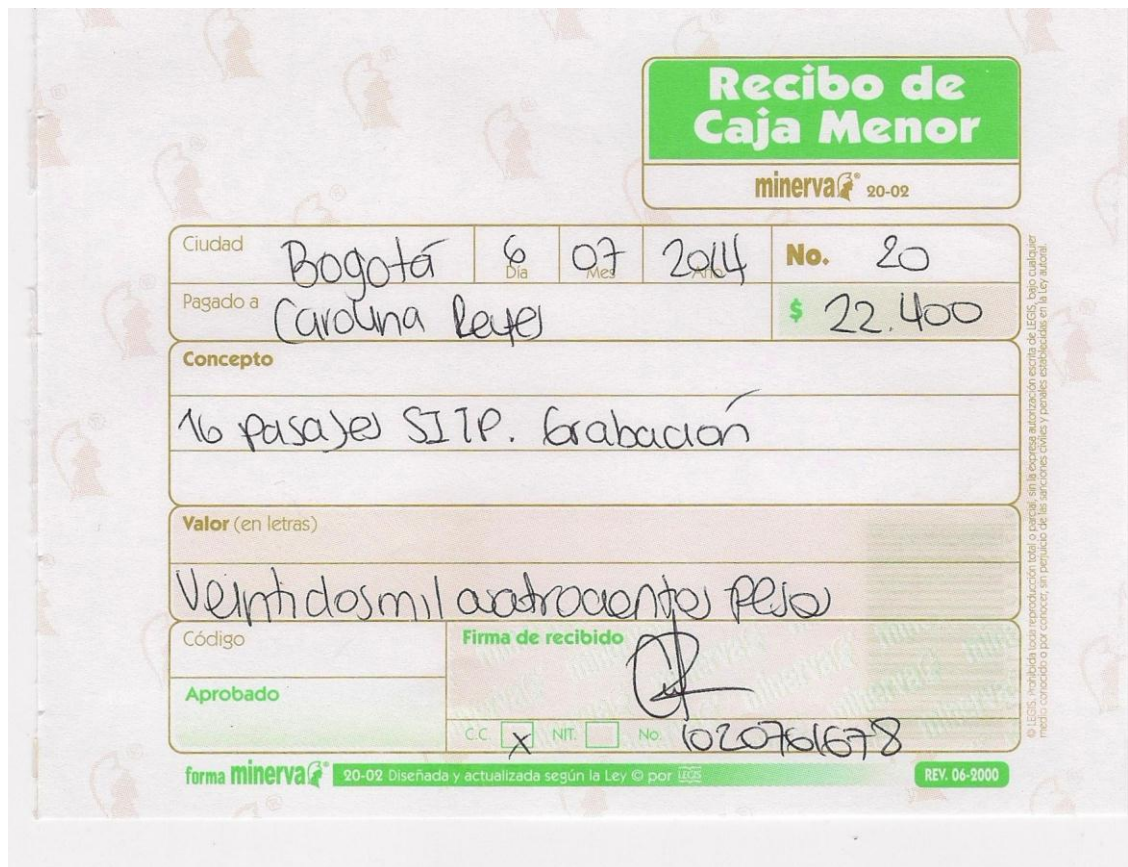 Recibo de
Caja Menor
minerva® 20-02
Ciudad Bogotá 6 Día 07 Mes 2014 Año No. 20
Pagado a Carolina Reyes $ 22.400
Concepto
16 pasajes SITP. Grabación
Valor (en letras)
Veintidosmil cuatrocientos pesos
Código
Firma de recibido
Aprobado
C.C. X NIT. No. 1020761678
forma minerva® 20-02 Diseñada y actualizada según la Ley © por LEGIS REV. 06-2000
© LEGIS. Prohibida toda reproducción total o parcial, sin la expresa autorización escrita de LEGIS, bajo cualquier
medio conocido o por conocer, sin perjuicio de las sanciones civiles y penales establecidas en la Ley autoral.